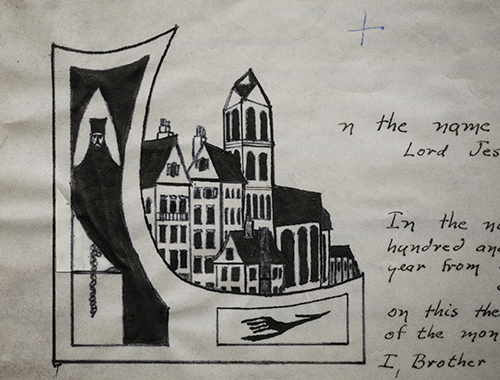 n the name
Lord Jes
In the na
hundred and
year from
on this the
of the mon
I, Brother